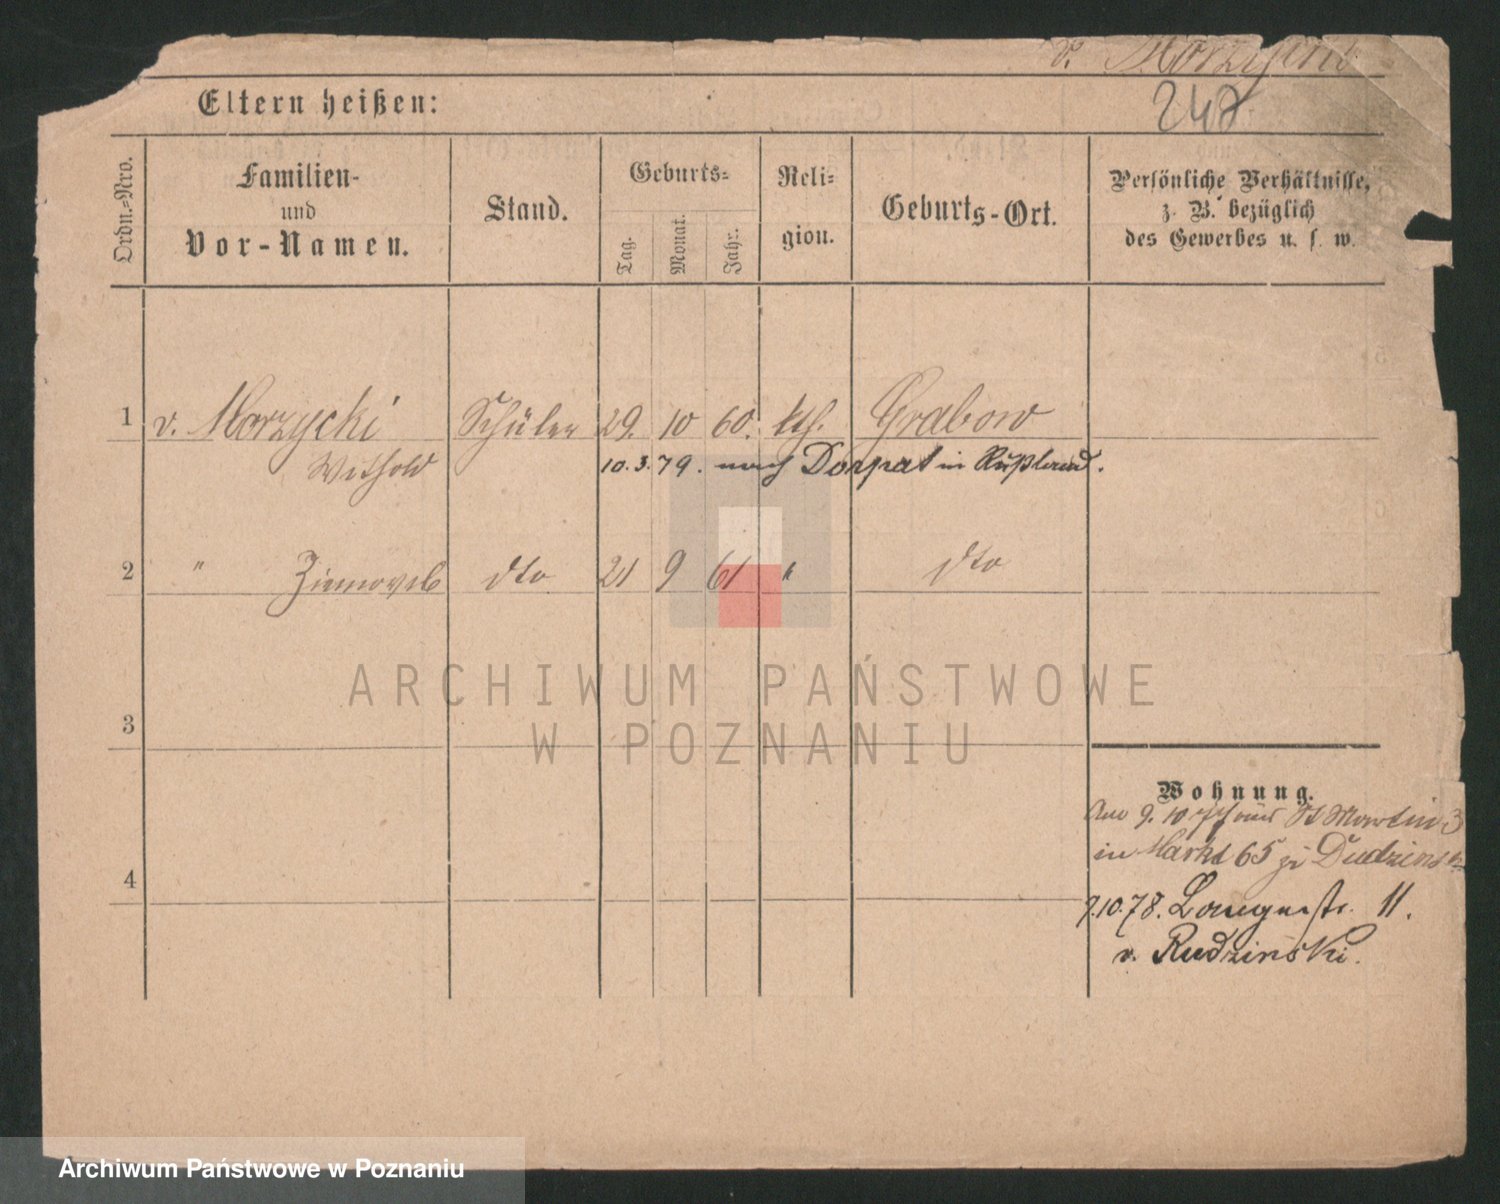 v. Morzycki
248
Eltern heißen:
Ordn.-Nro.
Familien-
und
Vor-Namen.
Stand.
Geburts-
Tag.
Monat.
Jahr.
Reli-
gion.
Geburts-Ort.
Persönliche Verhältnisse,
z. B. bezüglich
des Gewerbes u. s. w.
1 v. Morzycki Schüler 29. 10 60. kth. Grabow
Withold 10.3.79. nach Dorpat in Rußland.
2 " Ziemovib dto 21 9 61 " dto
3
ARCHIWUM PAŃSTWOWE
W POZNANIU
Wohnung.
9. 10 St Martin 3
in Markt 65 zu Dudzinski
4
9.10.78. Langestr. 11.
v. Rudzinski.
Archiwum Państwowe w Poznaniu